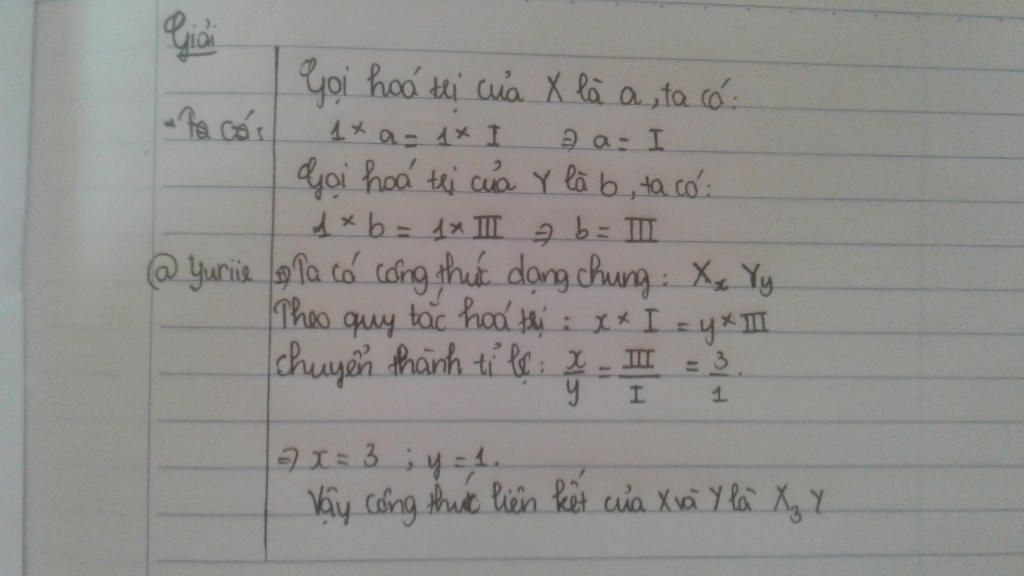 Giải
Gọi hoá trị của X là a, ta có:
- Ta có: 1 × a = 1 × I ⇒ a = I
Gọi hoá trị của Y là b, ta có:
1 × b = 1 × III ⇒ b = III
@ Yuriie ⇒ Ta có công thức dạng chung: XₓYy
Theo quy tắc hoá trị: x × I = y × III
Chuyển thành tỉ lệ: x/y = III/I = 3/1.
⇒ x = 3 ; y = 1.
Vậy công thức liên kết của X và Y là X₃Y